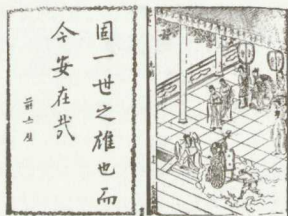 固一世之雄也而
今安在哉